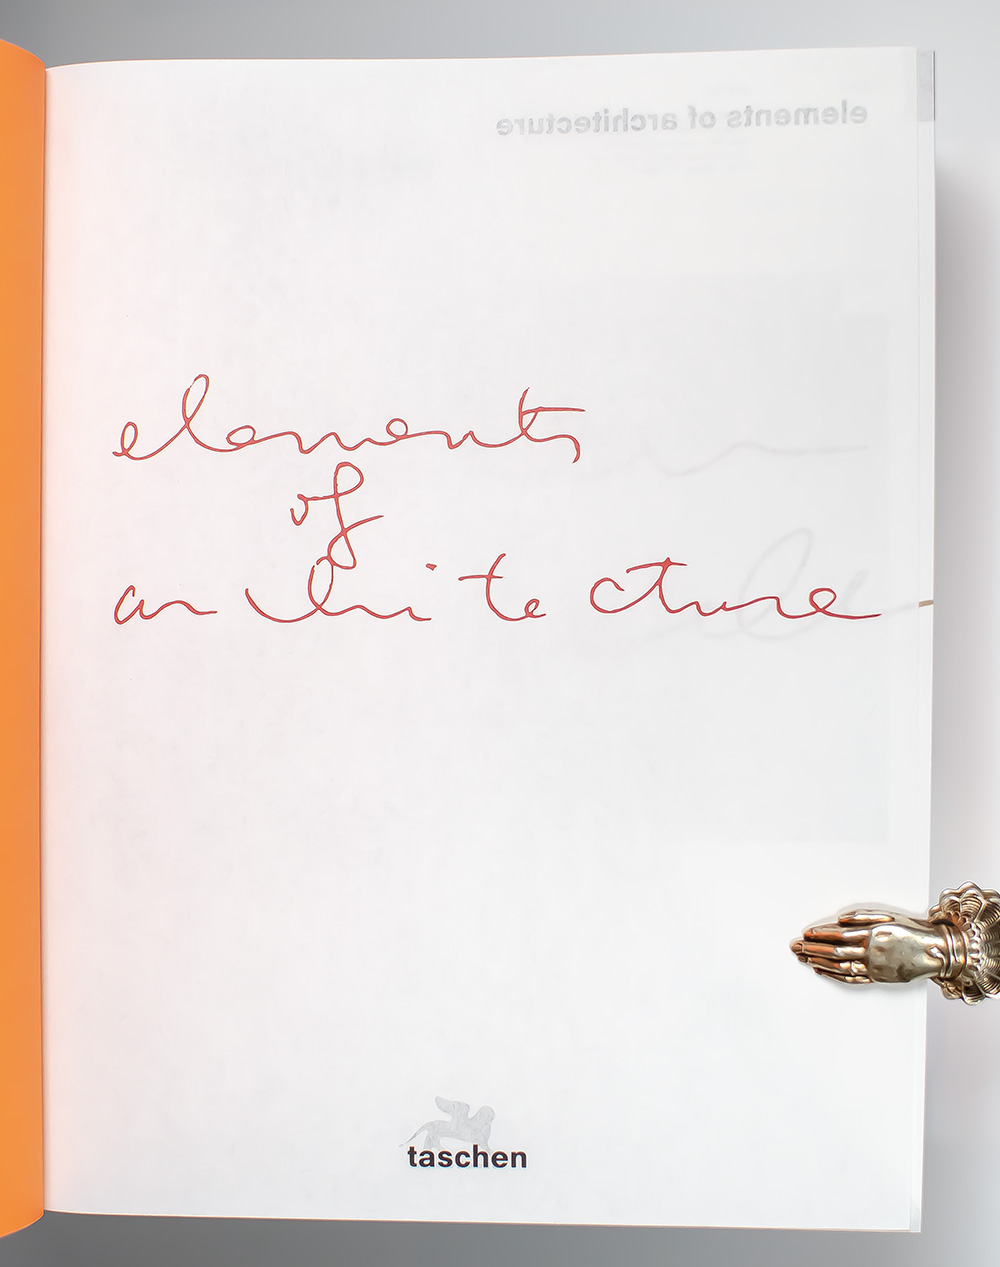 elements of architecture
elements
of
architecture
taschen